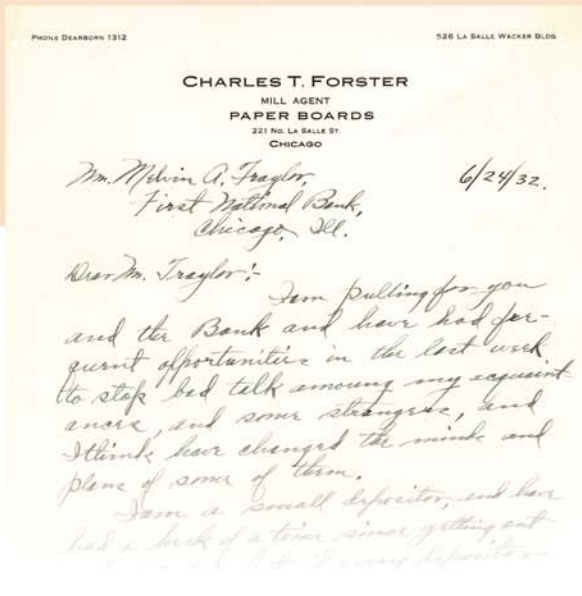 PHONE DEARBORN 1312
526 LA SALLE WACKER BLDG.
CHARLES T. FORSTER
MILL AGENT
PAPER BOARDS
221 NO. LA SALLE ST.
CHICAGO
Mr. Melvin A. Traylor,
6/24/32.
First National Bank,
Chicago, Ill.
Dear Mr. Traylor:-
I am pulling for you
and the Bank and have had fre-
quent opportunities in the last week
to stop bad talk amoung my acquaint-
ances, and some strangers, and
I think have changed the minds and
plans of some of them.
I am a small depositor, and have
had a heck of a time since getting out
every depositor